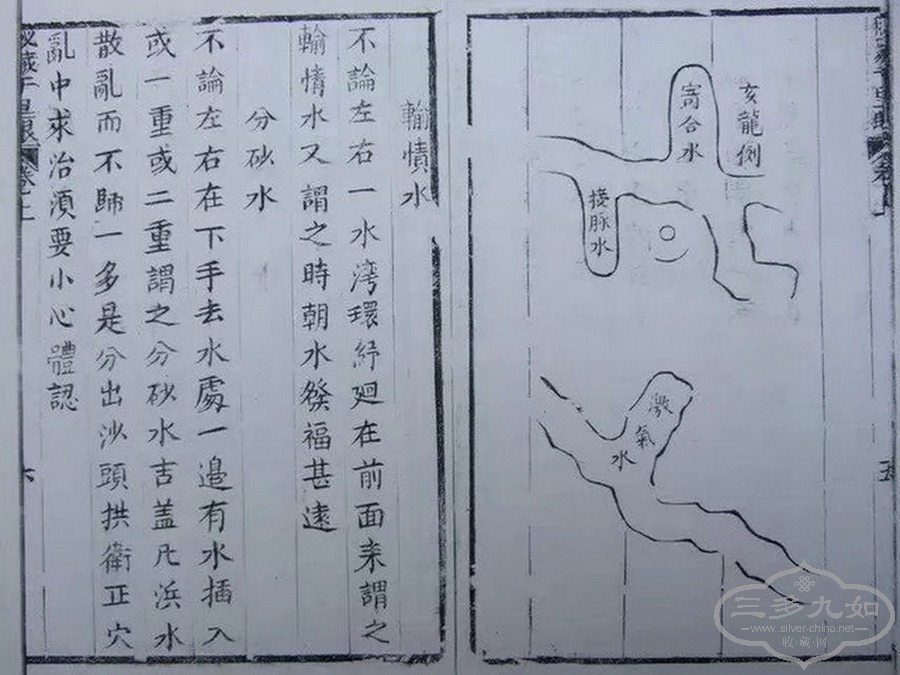 亥龍例
寄合水
接脉水
激氣水
五
輸情水
不論左右一水湾環紆廻在前面来謂之
輸情水又謂之時朝水發福甚遠
分砂水
不論左右在下手去水處一邊有水插入
或一重或二重謂之分砂水吉盖凡浜水
散亂而不歸一多是分出沙頭拱衛正穴
亂中求治湏要小心體認
六
三多九如
www.silver-china.net
收藏网